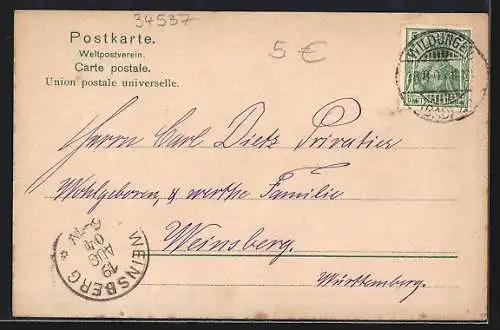 34537
5 €
Postkarte.
Weltpostverein.
Carte postale.
Union postale universelle.
WILDUNGEN
(BAD)
Herrn Carl Dietz Privatier
Wohlgeboren, & werthe Familie
Weinsberg.
Württemberg.
WEINSBERG
19
AUG
04